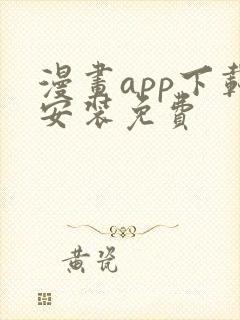 漫畫app下載
安裝免費
黃瓷